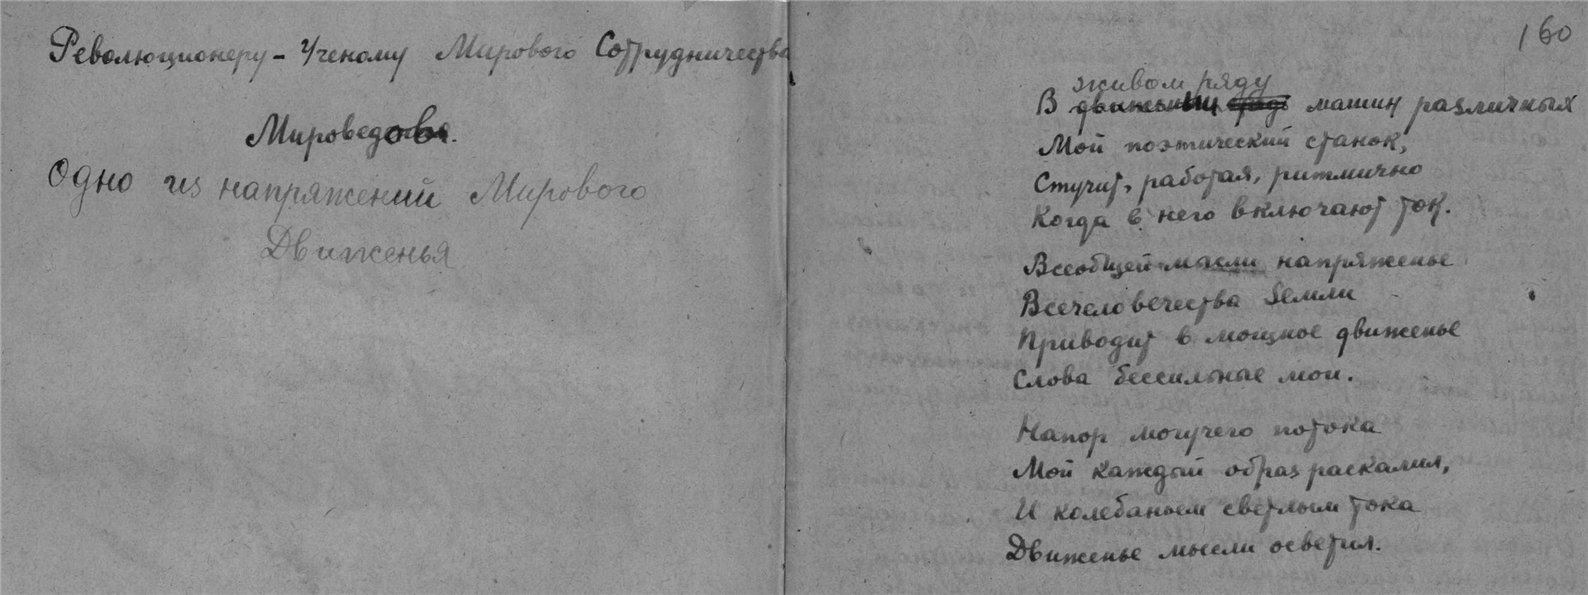 Революционеру - Ученому Мирового Сотрудничества
Мироведова.
Одно из напряжений Мирового
Движенья
160
живом ряду
В движеньи ряде машин различных
Мой поэтический станок,
Стучит, работая, ритмично
Когда в него включают ток.
Всеобщей мысли напряженье
Всечеловечества Земли
Приводит в мощное движенье
Слова бессильные мои.
Напор могучего потока
Мой каждый образ раскалил,
И колебаньем светлым тока
Движенье мысли осветил.